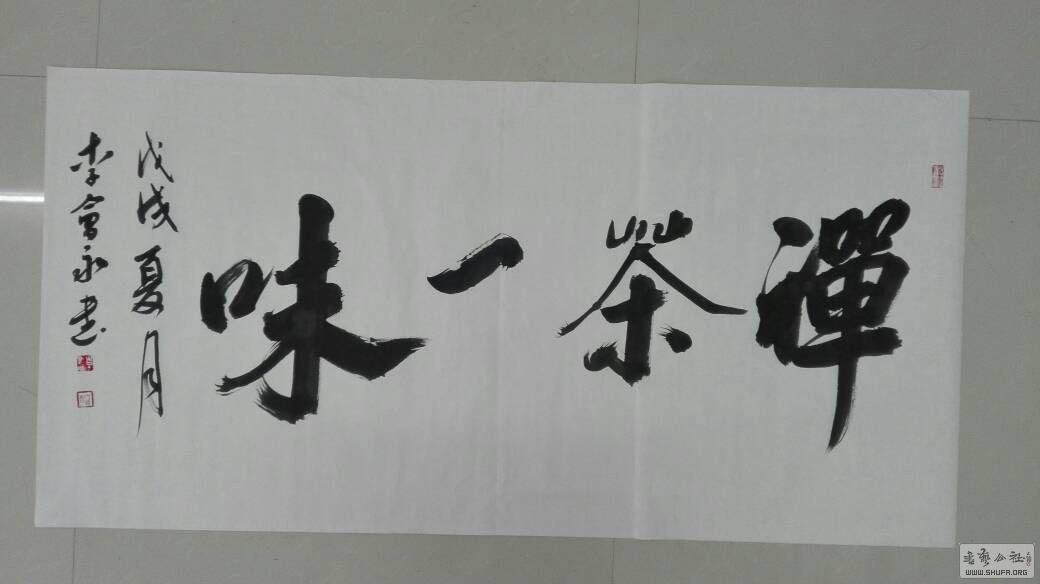 禪茶一味
戊戌夏月
李會永书
书艺公社
WWW.SHUFA.ORG